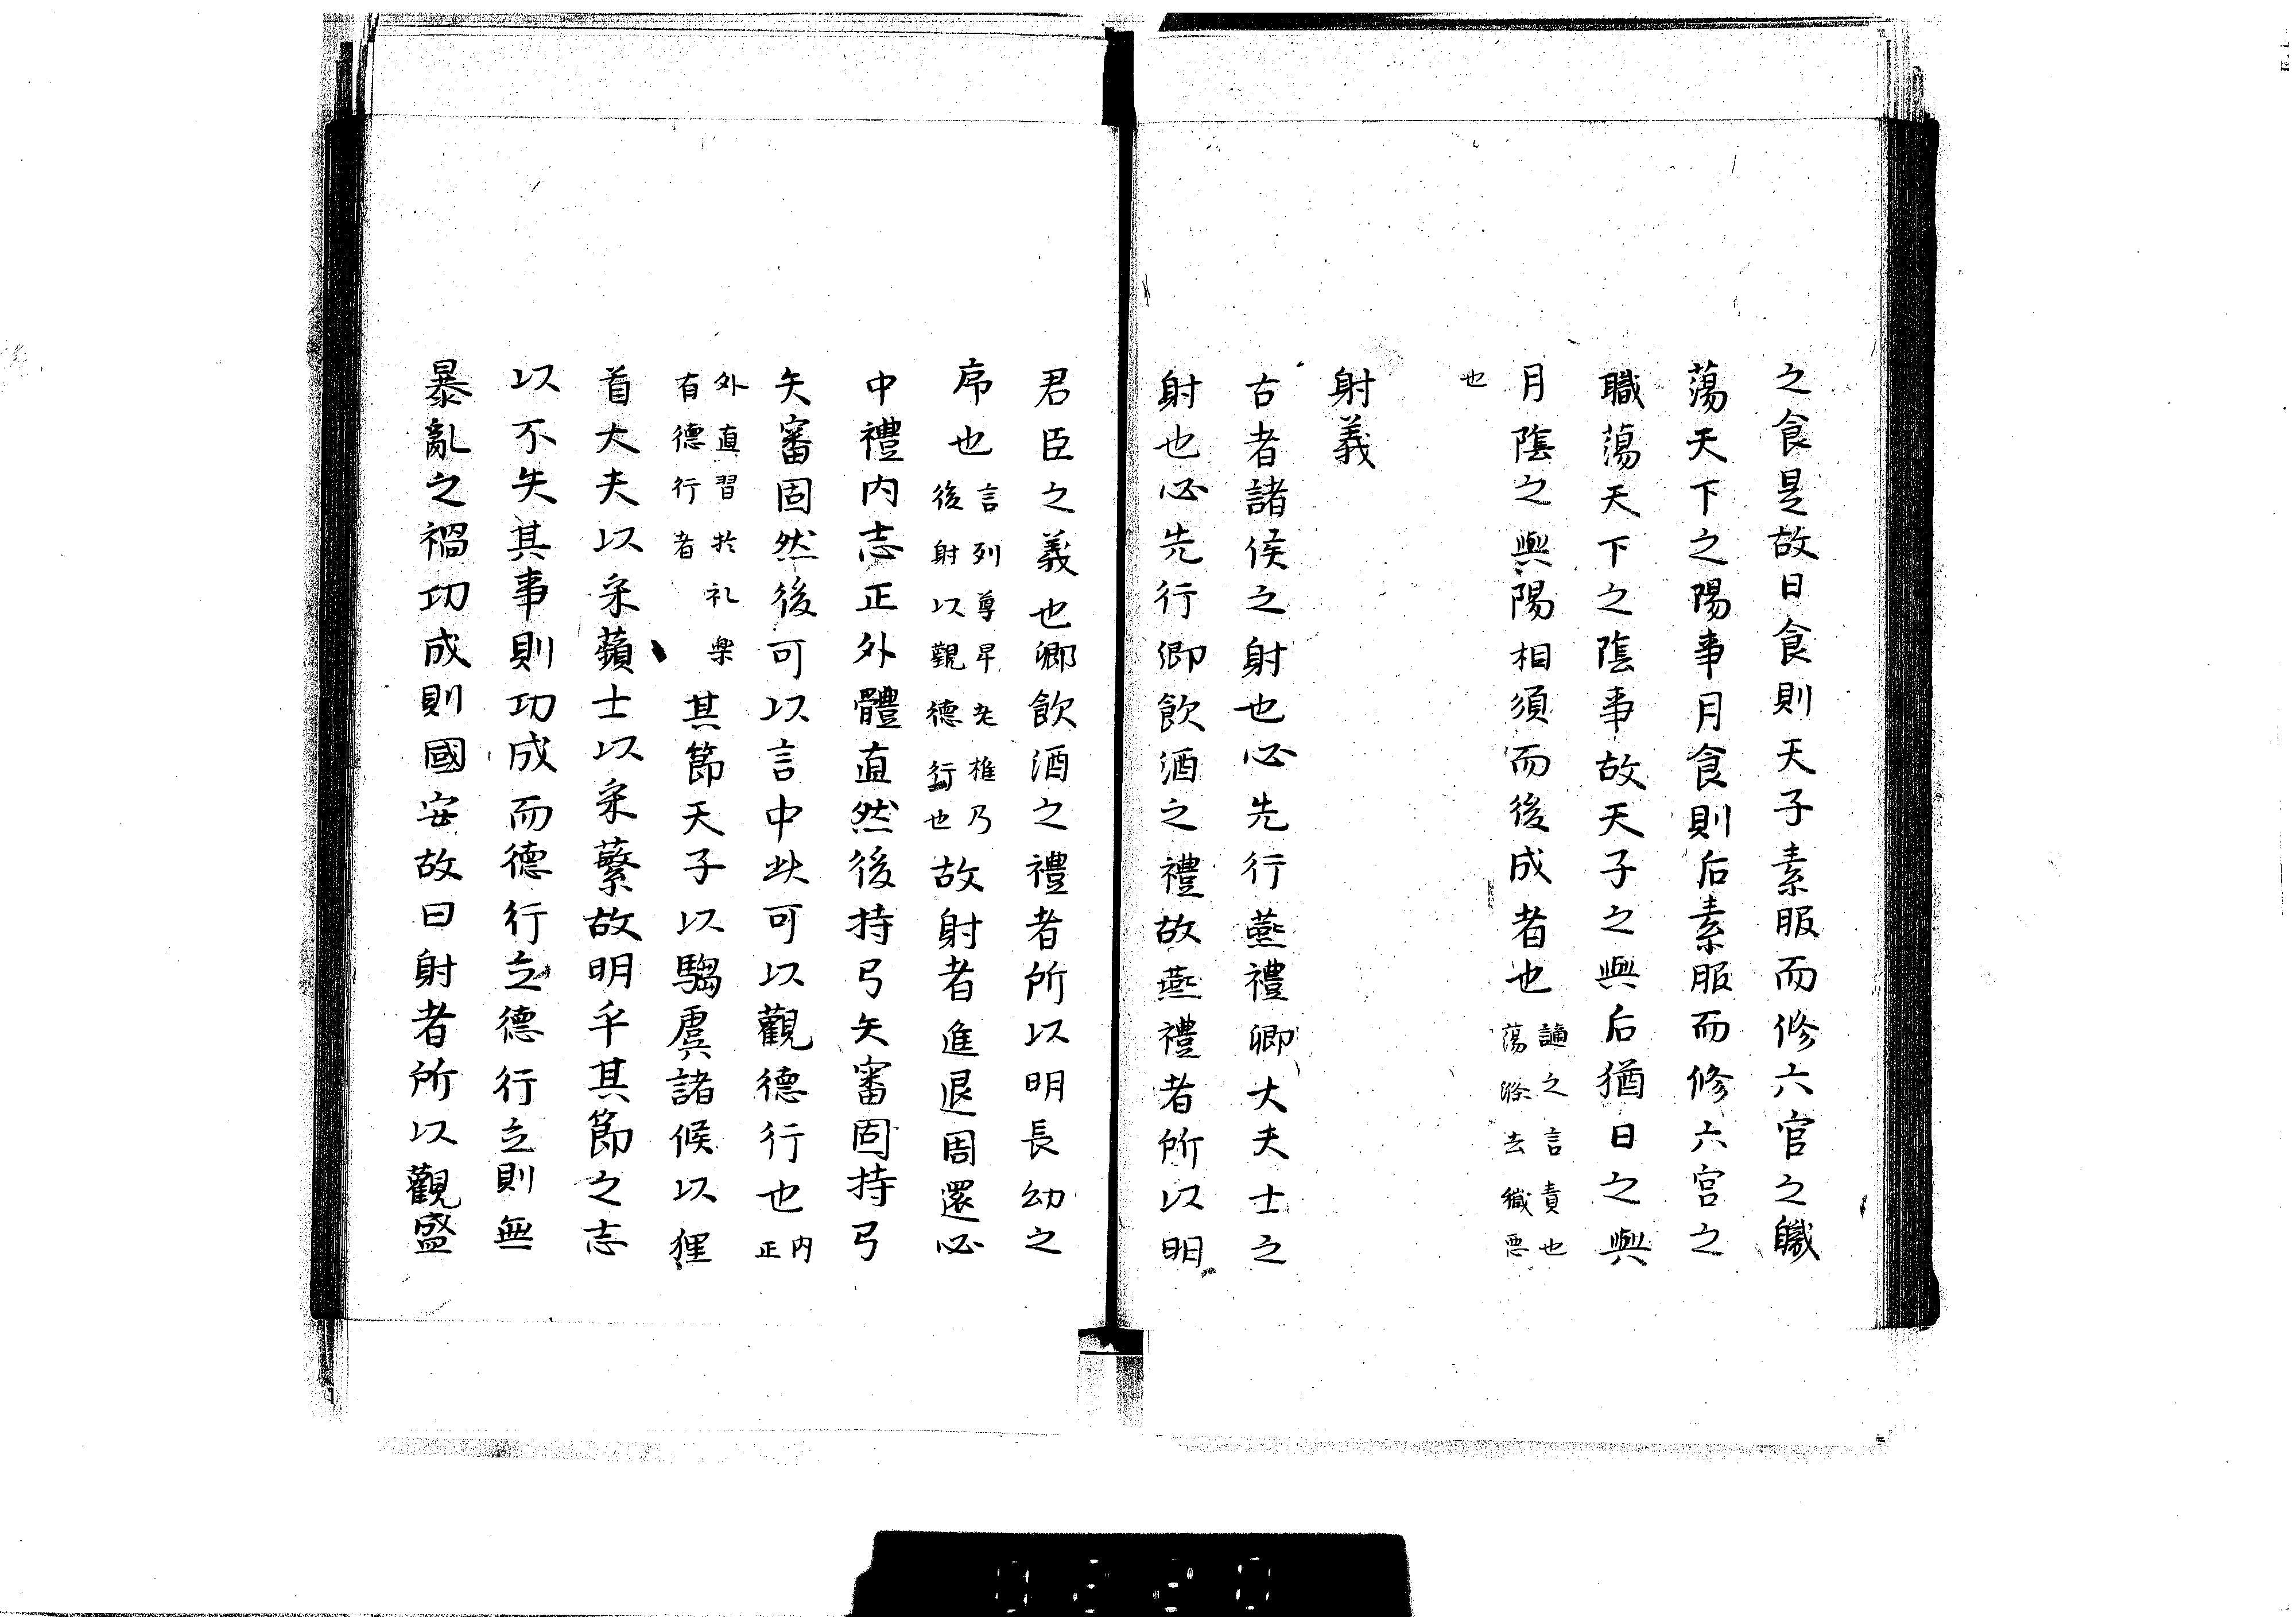 之食是故日食則天子素服而修六官之職
蕩天下之陽事月食則后素服而修六宮之
職蕩天下之陰事故天子之與后猶日之與
月陰之與陽相須而後成者也讁之言責也蕩滌去穢悪
也
射義
古者諸侯之射也必先行燕禮卿大夫士之
射也必先行卿飲酒之禮故燕禮者所以明
君臣之義也卿飲酒之禮者所以明長幼之
序也言列尊卑老稚乃後射以觀德行也故射者進退周還必
中禮内志正外體直然後持弓矢審固持弓
矢審固然後可以言中此可以觀德行也内正
外直習於礼樂有德行者其節天子以騶虞諸候以狸
首大夫以采蘋士以采蘩故明乎其節之志
以不失其事則功成而德行立德行立則無
暴亂之禍功成則國安故曰射者所以觀盛
0220